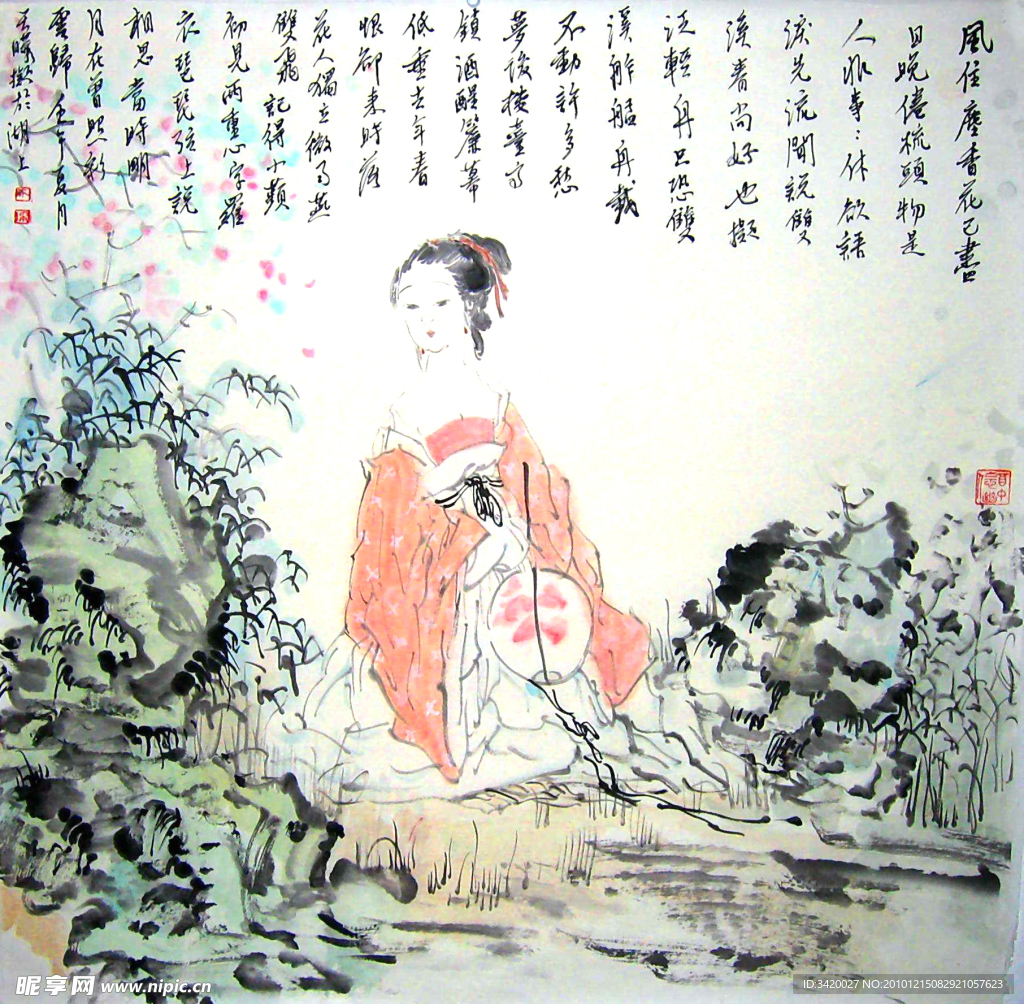 風住塵香花已盡
日晚倦梳頭物是
人非事:休欲語
淚先流聞說雙
溪春尚好也擬
泛輕舟只恐雙
溪舴艋舟載
不動許多愁
夢後樓臺高
鎖酒醒簾幕
低垂去年春
恨卻來時落
花人獨立微雨燕
雙飛 記得小蘋
初見兩重心字羅
衣琵琶弦上說
相思當時明
月在曾照彩
雲歸 壬午夏月
於湖上
昵享网 www.nipic.cn
ID:3420027 NO:20101215082921057623